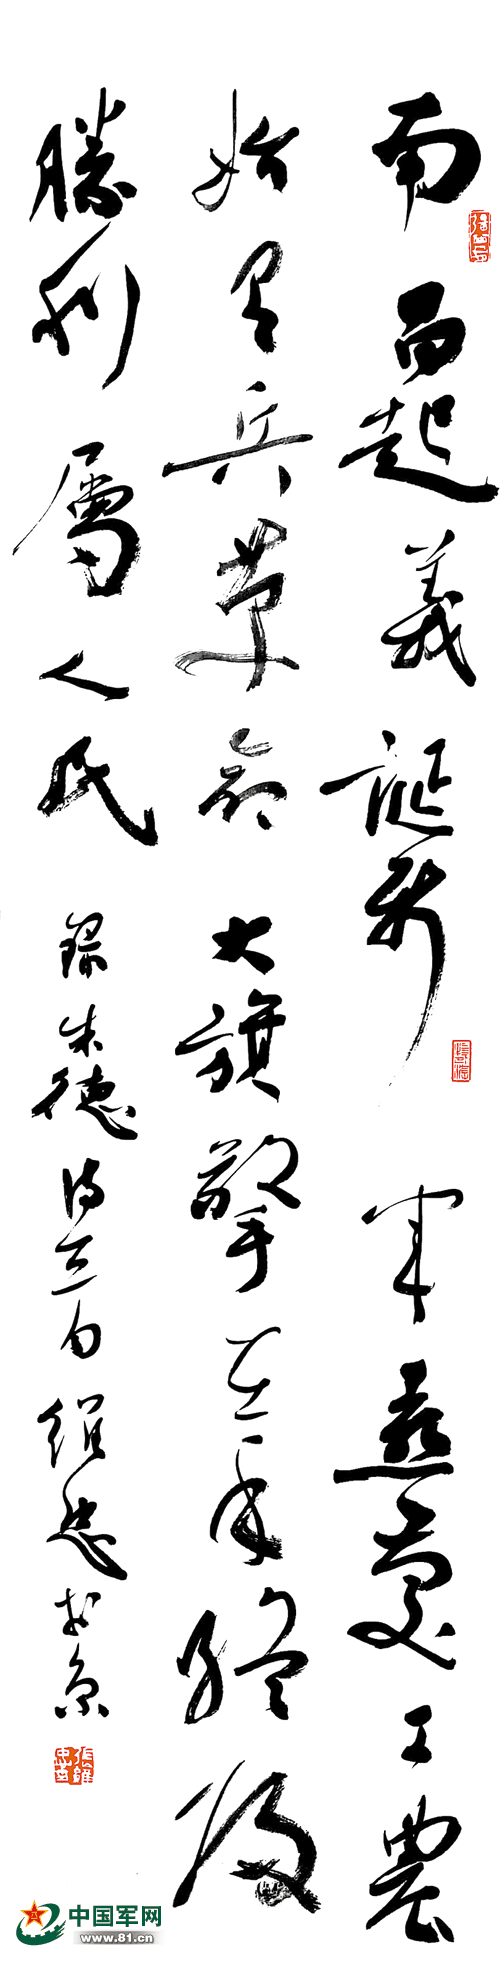 南昌起義誕新軍喜慶工農
始有兵革命大旗擎在手終歸
勝利屬人民 錄朱德詩句 維忠於京
中国军网
www.81.cn